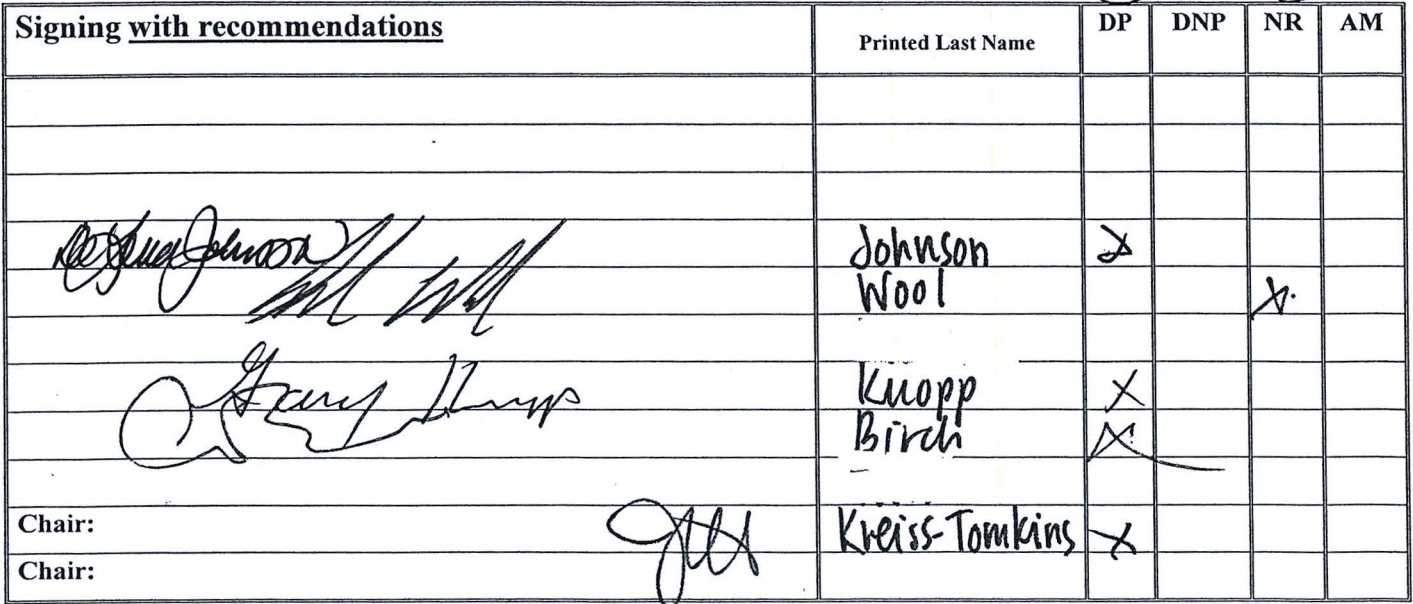 Signing with recommendations Printed Last Name DP DNP NR AM
Johnson Johnson X
Wool X
Gary Knopp Knopp X
Birch X
Chair: Kreiss-Tomkins X
Chair: